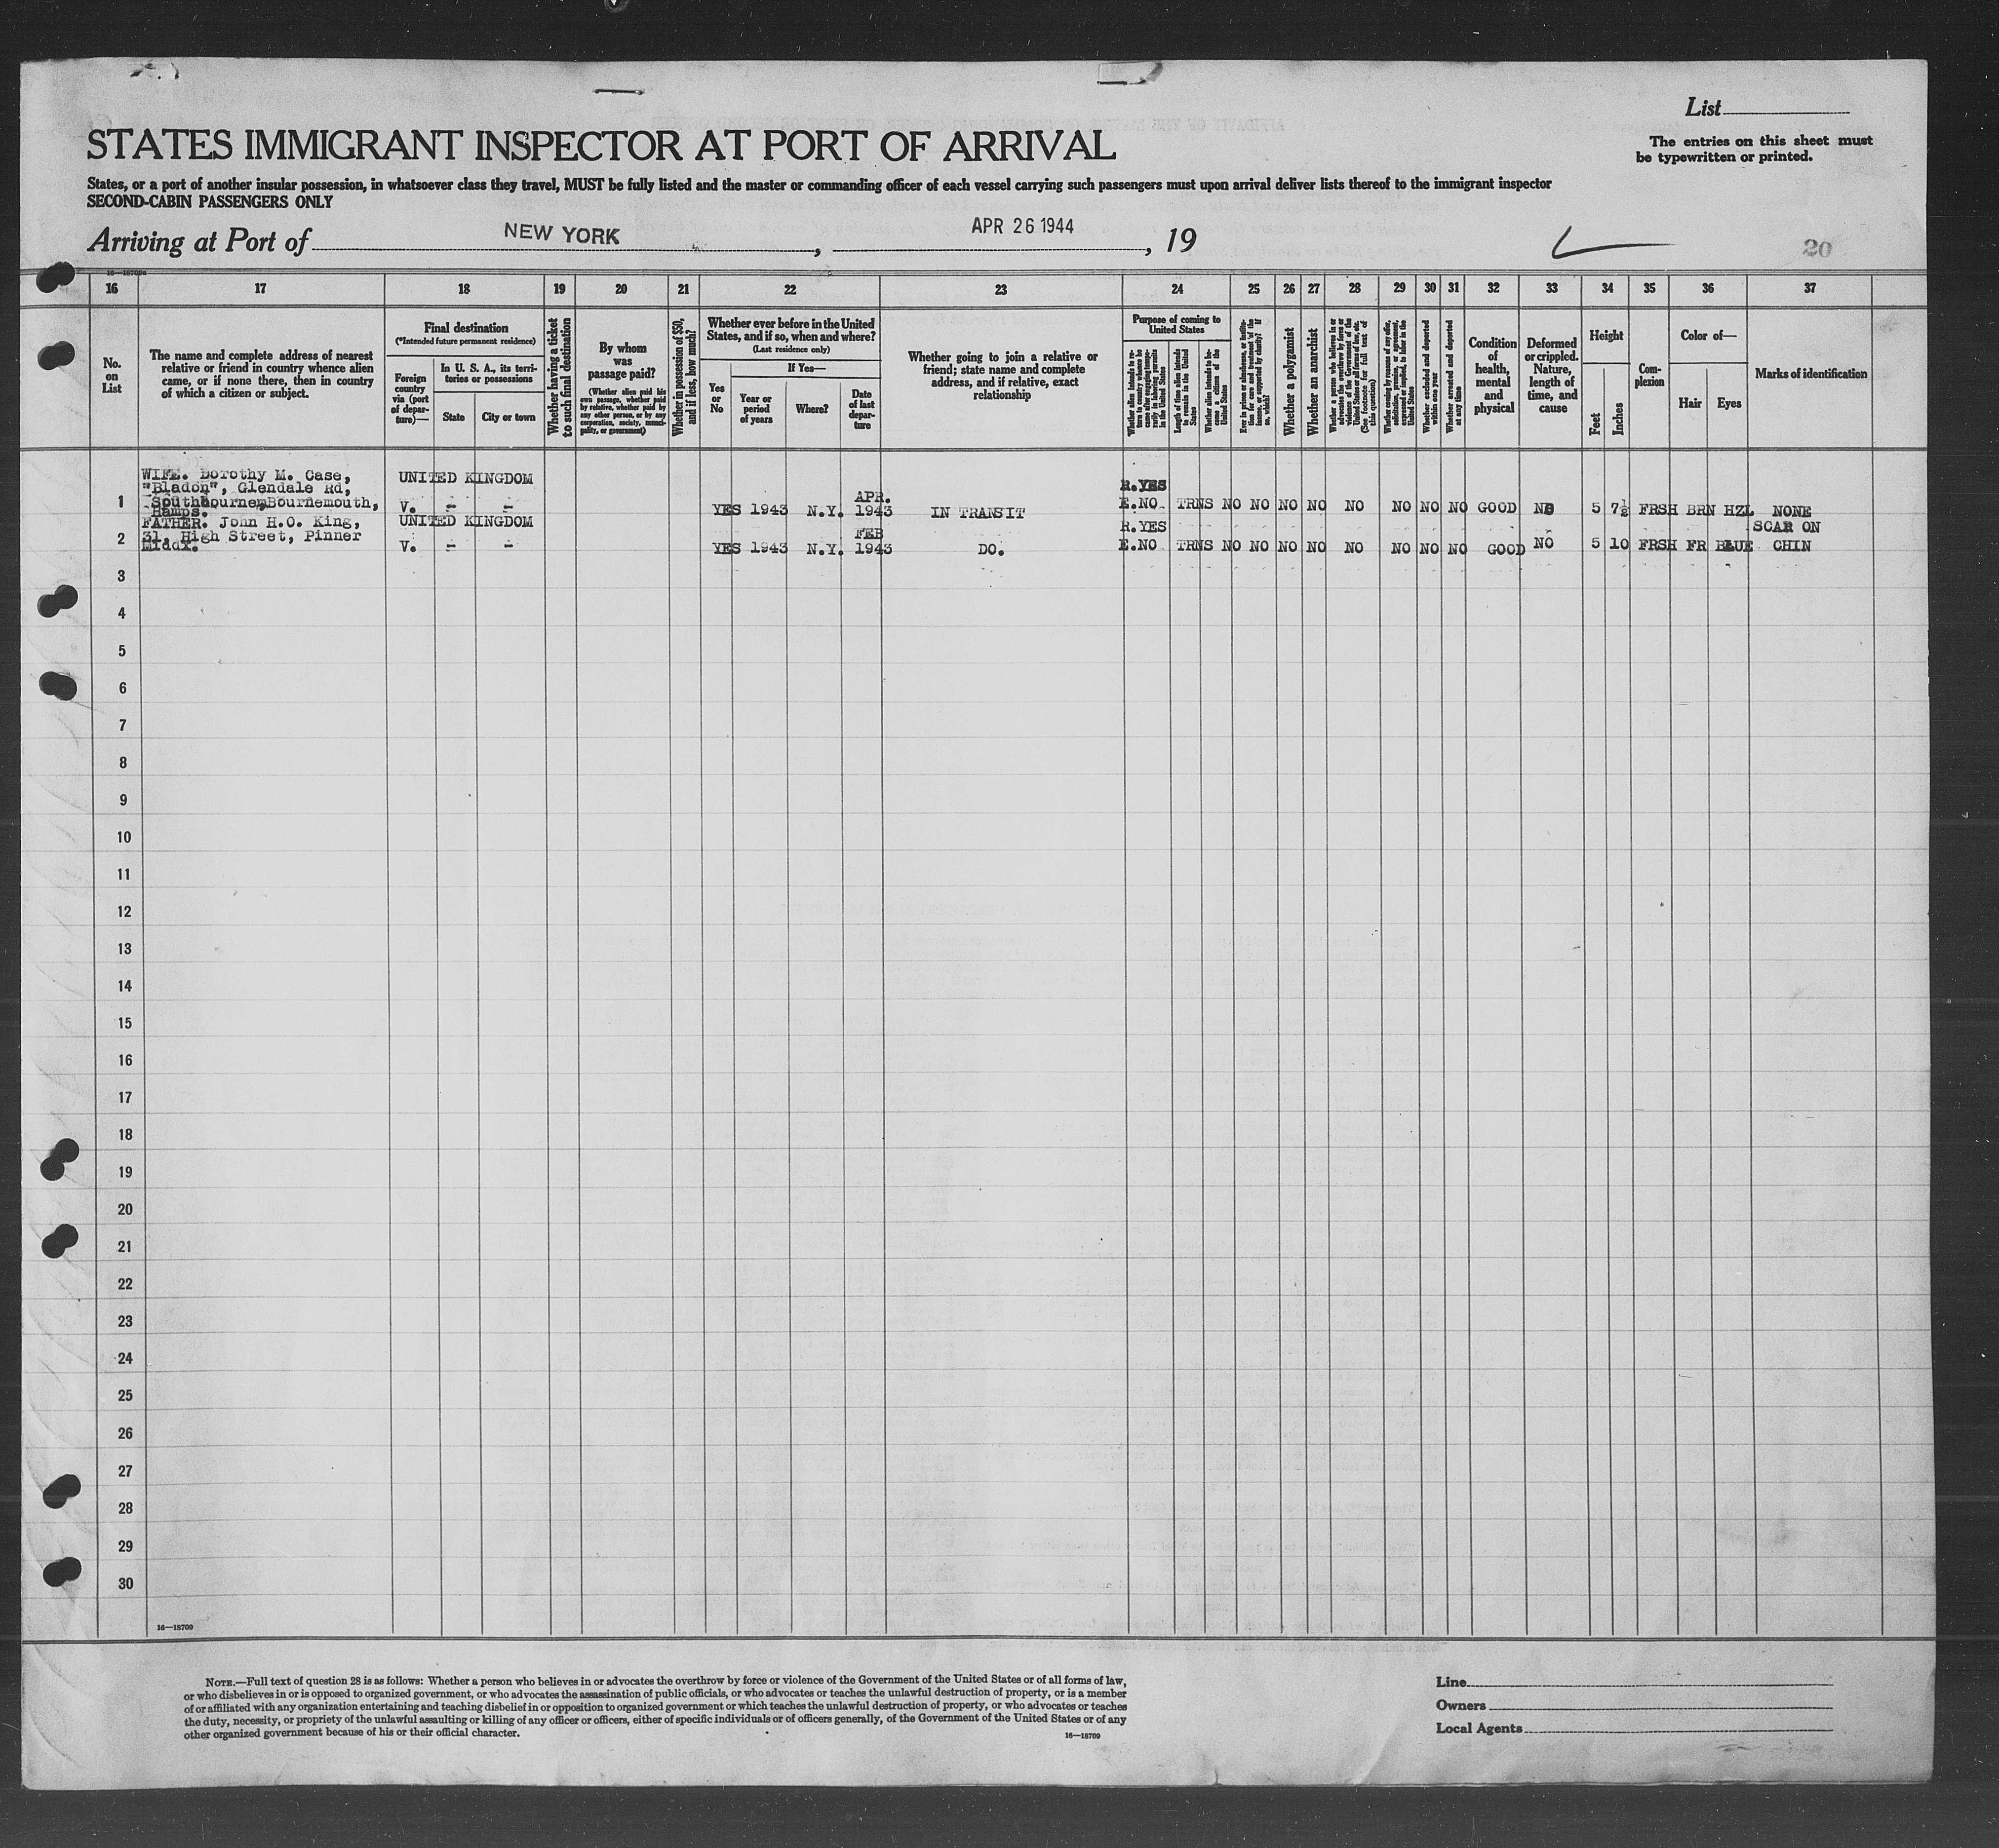 List
STATES IMMIGRANT INSPECTOR AT PORT OF ARRIVAL
The entries on this sheet must
be typewritten or printed.
States, or a port of another insular possession, in whatsoever class they travel, MUST be fully listed and the master or commanding officer of each vessel carrying such passengers must upon arrival deliver lists thereof to the immigrant inspector
SECOND-CABIN PASSENGERS ONLY
Arriving at Port of NEW YORK, APR 26 1944, 19
20
16 17 18 19 20 21 22 23 24 25 26 27 28 29 30 31 32 33 34 35 36 37
No.
on
List
The name and complete address of nearest
relative or friend in country whence alien
came, or if none there, then in country
of which a citizen or subject.
Final destination
(*Intended future permanent residence)
Foreign
country
via (port
of depar-
ture)—
In U. S. A., its terri-
tories or possessions
State
City or town
Whether having a ticket
to such final destination
By whom
was
passage paid?
(Whether alien paid his
own passage, whether paid
by relative, whether paid by
any other person, or by any
corporation, society, munici-
pality, or government)
Whether in possession of $50,
and if less, how much?
Whether ever before in the United
States, and if so, when and where?
(Last residence only)
Yes
or
No
If Yes—
Year or
period
of years
Where?
Date
of last
depar-
ture
Whether going to join a relative or
friend; state name and complete
address, and if relative, exact
relationship
Purpose of coming to
United States
Length of time alien intends
to remain in the United
States
Whether alien intends to be-
come a citizen of the
United States
Whether a polygamist
Whether an anarchist
Whether excluded and deported
within one year
Whether arrested and deported
at any time
Condition
of
health,
mental
and
physical
Deformed
or crippled.
Nature,
length of
time, and
cause
Height
Feet
Inches
Com-
plexion
Color of—
Hair
Eyes
Marks of identification
1
WIFE. Dorothy M. Case,
"Bladon", Glendale Rd,
Southbourne, Bournemouth,
Hamps.
UNITED KINGDOM
V. - -
YES 1943 N.Y. APR. 1943 IN TRANSIT R.YES E.NO TRNS NO NO NO NO NO NO NO GOOD NO 5 7½ FRSH BRN HZL NONE
2
FATHER. John H.O. King,
31, High Street, Pinner
Middx.
UNITED KINGDOM
V. - -
YES 1943 N.Y. FEB 1943 DO. R.YES E.NO TRNS NO NO NO NO NO NO NO GOOD NO 5 10 FRSH FR BLUE SCAR ON CHIN
3
4
5
6
7
8
9
10
11
12
13
14
15
16
17
18
19
20
21
22
23
24
25
26
27
28
29
30
16—18709
NOTE.—Full text of question 28 is as follows: Whether a person who believes in or advocates the overthrow by force or violence of the Government of the United States or of all forms of law,
or who disbelieves in or is opposed to organized government, or who advocates the assassination of public officials, or who advocates or teaches the unlawful destruction of property, or is a member
of or affiliated with any organization entertaining and teaching disbelief in or opposition to organized government or which teaches the unlawful destruction of property, or who advocates or teaches
the duty, necessity, or propriety of the unlawful assaulting or killing of any officer or officers, either of specific individuals or of officers generally, of the Government of the United States or of any
other organized government because of his or their official character.
16—18709
Line
Owners
Local Agents